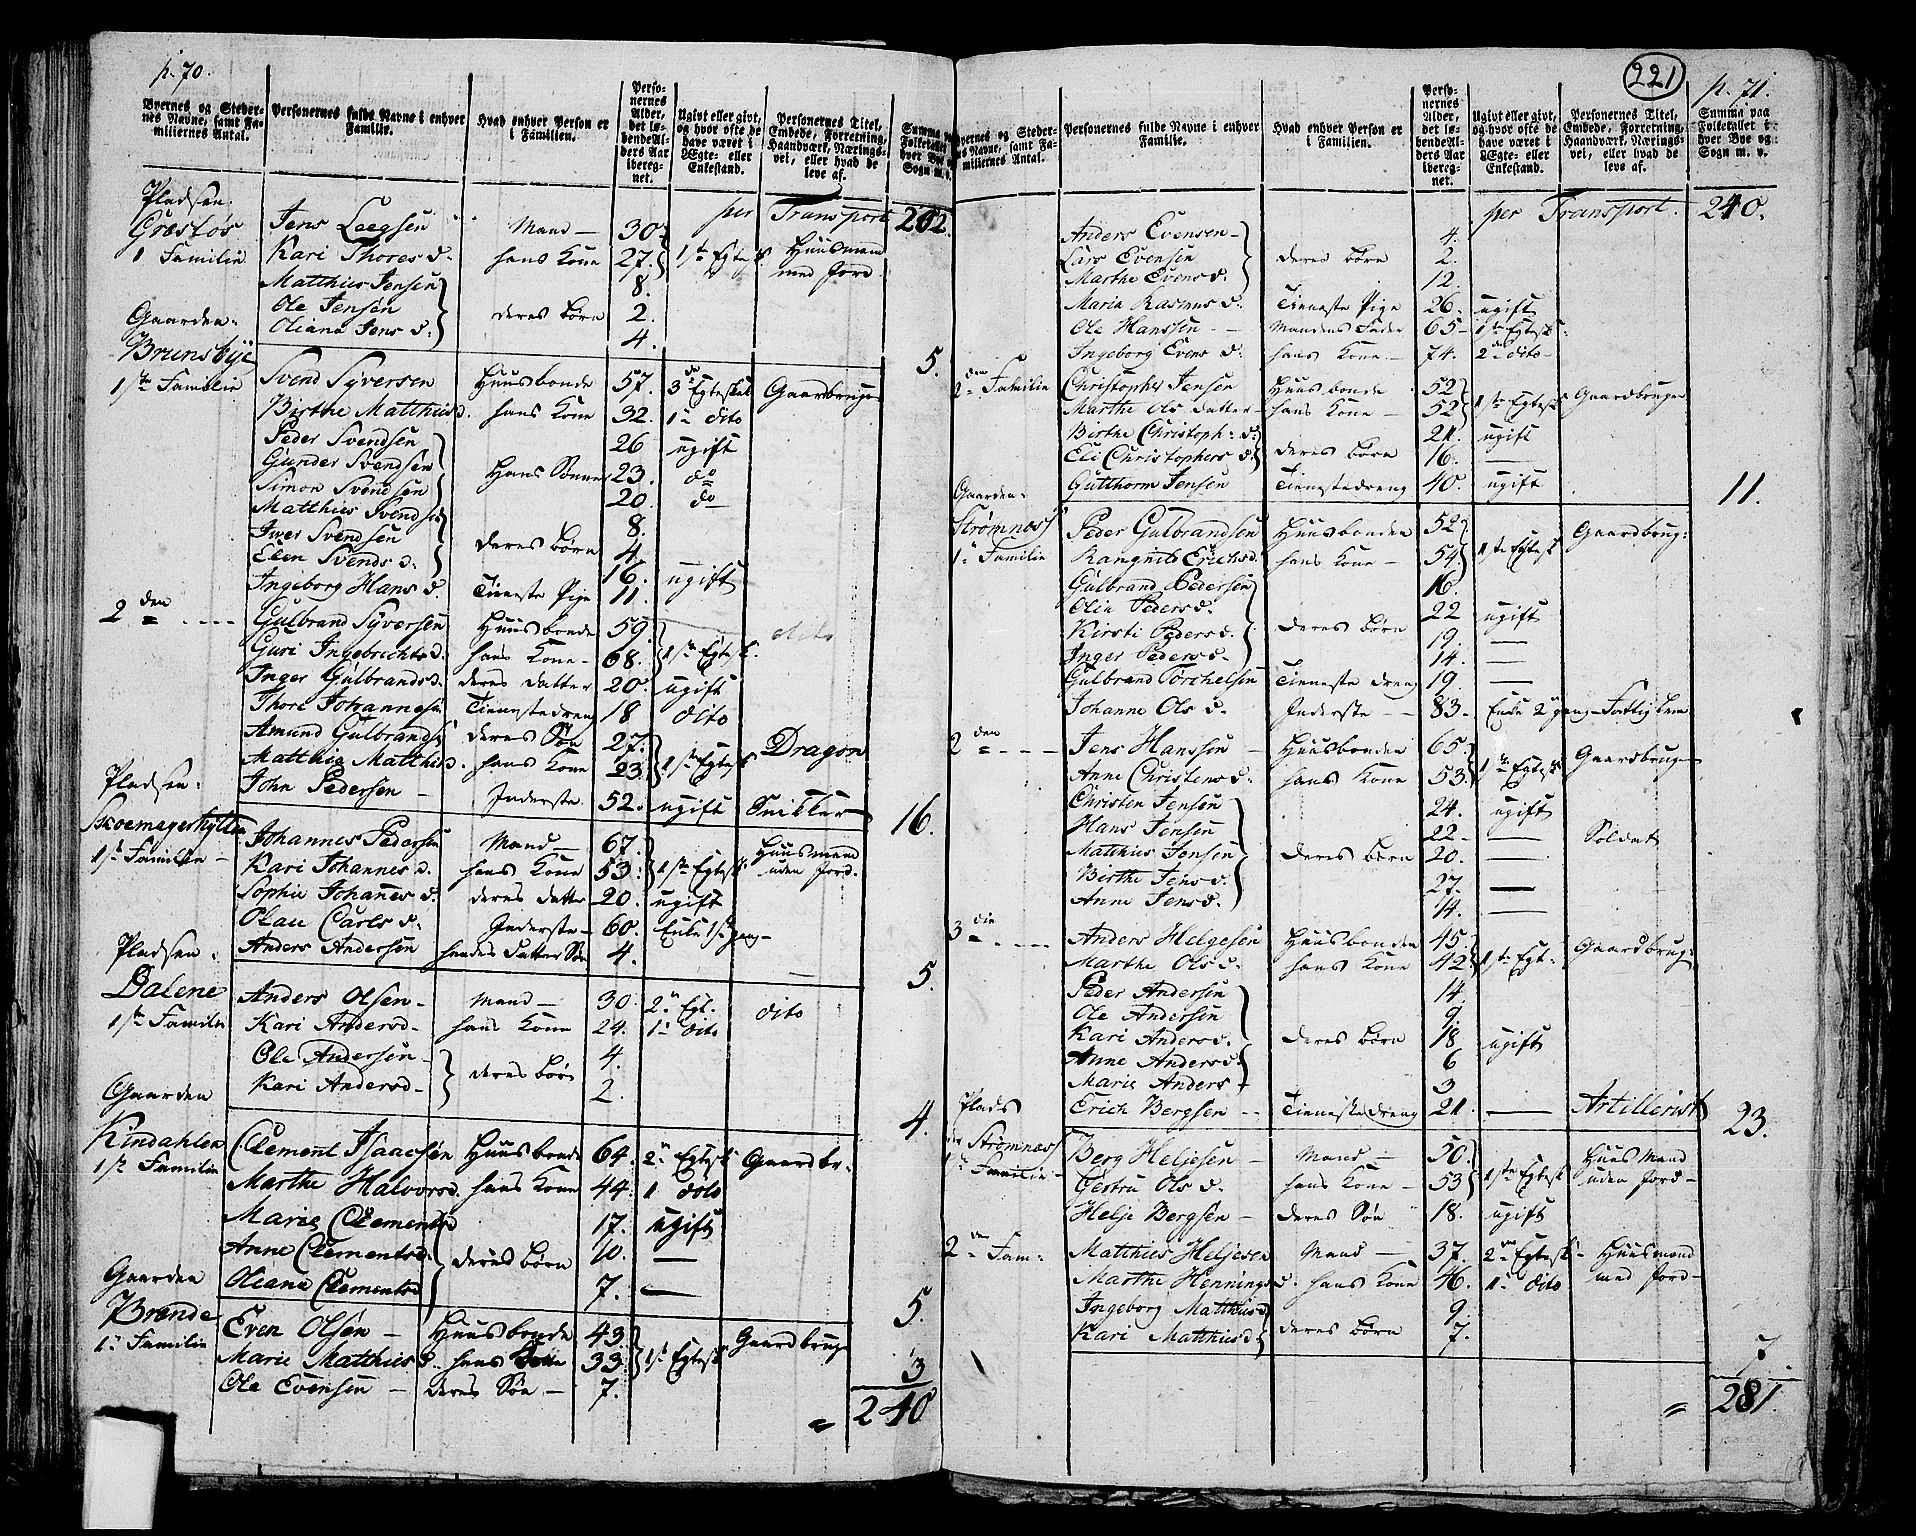 p. 70.
Byernes og Stedernes Navne, samt Familiernes Antal. | Personernes fulde Navne i enhver Familie. | Hvad enhver Person er i Familien. | Personernes Alder, det løbende Alders Aar iberegnet. | Ugivt eller givt, og hvor ofte de have været i Ægte- eller Enkestand. | Personernes Titel, Embede, Forretning, Haandværk, Næringsvei, eller hvad de leve af. | Summa paa Folketallet i hver Bye og Sogn m. v.
per Transport 202.
Pladsen. Græsløs
1 Familie Jens Leegsen Mand 30. 1ste Egtes. Huusmand med Jord
Kari Thores d. hans Kone 27.
Matthies Jensen deres Børn 8.
Ole Jensen 2.
Oliana Jens d. 4.
5.
Gaarden: Brunsbye
1ste Familie Svend Syversen Huusbonde 57. 3de Egteskab Gaardbruger
Birthe Matthiesd. hans Kone 32. 1te dito
Peder Svendsen Hans Sønner 26 ugift
Gunder Svendsen 23. do
Simon Svendsen 20. do
Matthies Svends. deres Børn 8.
Iver Svendsen 4.
Elen Svends d. 16. ugift
Ingeborg Hans d. Tieneste Pige 11.
2den Gulbrand Syversen Huusbonde 59. 1ste Egtesk. dito
Guri Ingebrichts d. hans Kone 68.
Inger Gulbrands d. deres Datter 20. ugift
Thore Johannesen Tienestedreng 18 dito
Amund Gulbrands. deres Søn 27. 1ste Egtesk. Dragon
Matthia Matthiesd. hans Kone 23.
John Pedersen Inderste 52. ugift Snikker
16.
Pladsen: Skoemagerhytten
1ste Familie Johannes Pedersen Mand 67. 1ste Egtesk. Huusmand uden Jord.
Kari Johannes d. hans Kone 53.
Sophie Johañes d. deres Datter 20. ugift
Olau Carls d. Inderste 60. Enke 1ste gang
Anders Andersen hendes Datter Søn 4.
5.
Pladsen: Dalene
1ste Familie Anders Olsen Mand 30. 2n Egt. dito
Kari Andersd. hans Kone 24. 1te dito
Ole Andersen deres Børn 4.
Kari Andersd. 2.
4.
Gaarden Kindahlen
1ste Familie Clement Isaacsen Huusbonde 64. 2n Egtesk. Gaardbr.
Marthe Halvorsd. hans Kone 44. 1 dito
Marie Clementsd deres Børn 17. ugift
Anne Clementsd. 10. —
Oliana Clementsd 7. —
5.
Gaarden Brænde
1te Familie Even Olsen Huusbonde 43. 1ste Egtesk. Gaardbruger
Marie Matthies d. hans Kone 33.
Ole Evensen deres Søn 7.
3
= 240
221
p. 71.
Byernes og Stedernes Navne, samt Familiernes Antal. | Personernes fulde Navne i enhver Familie. | Hvad enhver Person er i Familien. | Personernes Alder, det løbende Alders Aar iberegnet. | Ugivt eller givt, og hvor ofte de have været i Ægte- eller Enkestand. | Personernes Titel, Embede, Forretning, Haandværk, Næringsvei, eller hvad de leve af. | Summa paa Folketallet i hver Bye og Sogn m. v.
per Transport. 240.
Anders Evensen deres Børn 4.
Lars Evensen 2.
Marthe Evens d. 12.
Maria Rasmus d. Tieneste Pige 26. ugift
Ole Hanssen Mandens Fader 65 1ste Egtesk.
Ingeborg Evens d. hans Kone 74. 2den dito
2den Familie Christopher Jensen Huusbonde 52 1ste Egtesk. Gaardbruger
Marthe Ols datter hans Kone 52
Birthe Christoph: d. deres Børn 21. ugift
Eli Christophers d. 16. —
Gutthorm Jensen Tienestedreng 40. ugift
11.
Gaarden: Strømnæs
1te Familie Peder Gulbrandsen Huusbonden 52 1ste Egtesk. Gaardbrug:
Rangnild Erichsd. hans Kone 54.
Gulbrand Pedersen deres Børn 16.
Olia Peders d. 22 ugift
Kirsti Peders d. 19. —
Inger Peders d. 14. —
Gulbrand Torchelsen Tieneste dreng 19. —
Johanne Ols d. Inderste 83. Enke 2 gang Fattig lem
2den Jens Hanssen Huusbonden 65. 1te Egtesk. Gaardbruger
Anne Christens d. hans Kone 53.
Christen Jensen deres Børn 24. ugift
Hans Jensen 22. — Soldat
Matthies Jensen 20. —
Birthe Jens d. 27. —
Anne Jens d. 14. —
3die Anders Helgesen Huusbonden 45. 1ste Egt. Gaardbrug:
Marthe Ols d. hans Kone 42.
Peder Andersen deres Børn 14.
Ole Andersen 9.
Kari Anders d. 18 ugift
Anne Anders d. 6
Marie Anders 3
Erich Bergsen Tieneste dreng 21. — Artillerist
23.
Plads Strømnæs
1te Familie Berg Heljesen Mand 50. 1ste Egtesk Huus Mand uden Jord
Gertru Ols d. hans Kone 53
Helje Bergsen deres Søn 18. ugift
2den Fam: Matthies Heljesen Mand 37. 2den Egtesk. Huusmand med Jord
Marthe Hennings d. hans Kone 46. 1te dito
Ingeborg Matthiesd. deres Børn 9.
Kari Matthiesd. 7.
7
= 281.